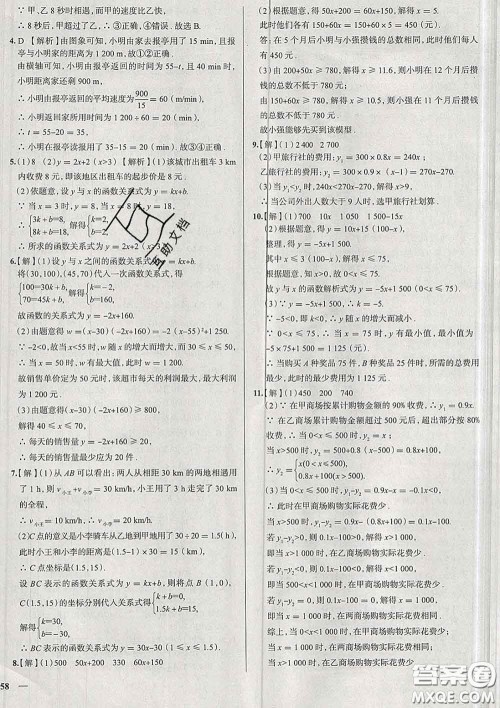 ∵ 甲、乙相遇前,甲的速度比乙快,
∴ 8秒后,甲超过了乙;∴ ③正确.故选 B.
4. D 【解析】由图象可知,小明由家去报亭用了 15 min,且
小明家距离报亭为 1 200 m,故①②正确.
由横轴可知,小明返回家的时间为 55-t,且 40 min 时,小
明距离家还剩 900 m,
∴ 小明由报亭返回的平均速度为900/15=60(m/min),
∴ 小明返回家所用时间为 1 200÷60=20(min),
∴ t=55-20=35(min),
∴ 小明在报亭停留了 35-15=20(min).故③④正确.
5.(1)8 (2)y=2x+2(x>3) 【解析】(1)该城市出租车 3 km
内收费 8 元,即该地区出租车的起步价是 8 元.
(2)依题意,设 y 与 x 的函数关系式为 y=kx+b.
∵ 当 x=3 时,y=8,当 x=8 时,y=18,
∴ {3k+b=8, 8k+b=18, 解得{k=2, b=2.
∴ 所求的函数关系式为 y=2x+2(x>3).
6.【解】(1)设 y 与 x 之间的函数关系式为 y=kx+b,
将(30,100),(45,70)代入一次函数关系式,得
{100=30k+b, 70=45k+b, 解得{k=-2, b=160.
故函数关系式为 y=-2x+160.
(2)由题意得 w=(x-30)(-2x+160)=-2(x-55)²+1 250.
∵ -2<0,故当 x<55 时,w 随 x 的增大而增大,而 30≤x≤50,
∴ 当 x=50 时,w 有最大值,此时 w=1 200.
故销售单价定为 50 元时,该超市每天的利润最大,最大利
润为 1 200 元.
(3)由题意得(x-30)(-2x+160)≥800,
解得 40≤x≤70.
∵ 每天的销售量 y=-2x+160≥20,
∴ 每天的销售量最少应为 20 件.
7.【解】(1)从 AB 可以看出:两人从相距 30 km 的两地相遇用
了 1 h,则 v小王+v小李=30 km/h,小王用了 3 h 走完了 30 km
的全程,
∴ v小王=10 km/h,∴ v小李=20 km/h.
(2)C 点的意义是小李骑车从乙地到甲地用了 30÷20=1.5(h),
此时小王和小李的距离是(1.5)×10=15(km).
∴ C 点坐标是(1.5,15).
设 BC 表示的函数关系式为 y=kx+b,则将点 B(1,0)和
C(1.5,15)的坐标分别代入关系式得{k+b=0, 1.5k+b=15,
解得{k=30, b=-30.
∴ BC 表示的函数关系式为 y=30x-30(1≤x≤1.5).
8.【解】(1)500 50x+200 330 60x+150
58
(2)依题意,得 50x+200=60x+150,解得 x=5.
此时他们各有 50x+200=50×5+200=450(元).
答:在 5 个月后小明与小强攒钱的总数相同,此时每人有
450 元.
(3)由 200+50x≥780,解得 x≥11.6,故小明在 12 个月后攒
钱的总数不低于 780 元;
由 150+60x≥780,解得 x≥10.5,故小强在 11 个月后攒钱的
总数不低于 780 元.
故小强能够先买到该模型.
9.【解】(1)2 400 2 700
(2)甲旅行社的费用:y₁=300×0.8x=240x;
乙旅行社的费用:y₂=300×0.9×(x-1)=270x-270.
(3)当 y₁<y₂ 时,240x<270x-270,解得 x>9.
当公司外出人数大于 9 人时,选甲旅行社划算.
10.【解】(1)700 10x 1 050 1 500-15x
(2)根据题意,得 y=10x+(1 500-15x),
解得 y=-5x+1 500.
其中 x≤3(100-x),解得 x≤75.
故 y 与 x 的函数解析式为 y=-5x+1 500(0<x≤75).
(3)∵ y=-5x+1 500,
∵ -5<0,∴ y 随 x 的增大而减小.
∵ 0<x≤75,
∴ 当 x=75 时,y 最小,且最小值为 y=-5×75+1 500=1 125.
∴ 当购买 A 种奖品 75 件,B 种奖品 25 件时,所需的总费用
最少,最少费用为 1 125 元.
11.【解】(1)450 200 740
(2)∵ 在甲商场按累计购物金额的 90%收费,∴ y₁=0.9x.
∵ 在乙商场累计购物金额超过 500 元后,超出部分按 80%
收费,∴ 当 0<x≤500 时,y₂=x;
当 x>500 时,y₂=500+0.8(x-500)=0.8x+100.
∴ y₂={x(0<x≤500), 0.8x+100(x>500).
(3)当 0<x≤500 时,y₁-y₂=0.9x-x=-0.1x<0,
∴ 当 0<x≤500 时,在甲商场购物实际花费少.
当 x>500 时,y₁-y₂=0.9x-(0.8x+100)=0.1x-100.
若 y₁-y₂<0,即 0.1x-100<0,解得 x<1 000,
即当 500<x<1 000 时,在甲商场购物实际花费少;
若 y₁-y₂=0,即 0.1x-100=0,解得 x=1 000,
即当 x=1 000 时,在两商场购物实际花费相同;
若 y₁-y₂>0,即 0.1x-100>0,解得 x>1 000,
即当 x>1 000 时,在乙商场购物实际花费少.
综上所述:当 0<x<1 000 时,在甲商场购物实际花费少;
当 x=1 000 时,在两商场购物实际花费相同;
当 x>1 000 时,在乙商场购物实际花费少.
互助文档
答案圈
MXQE.COM